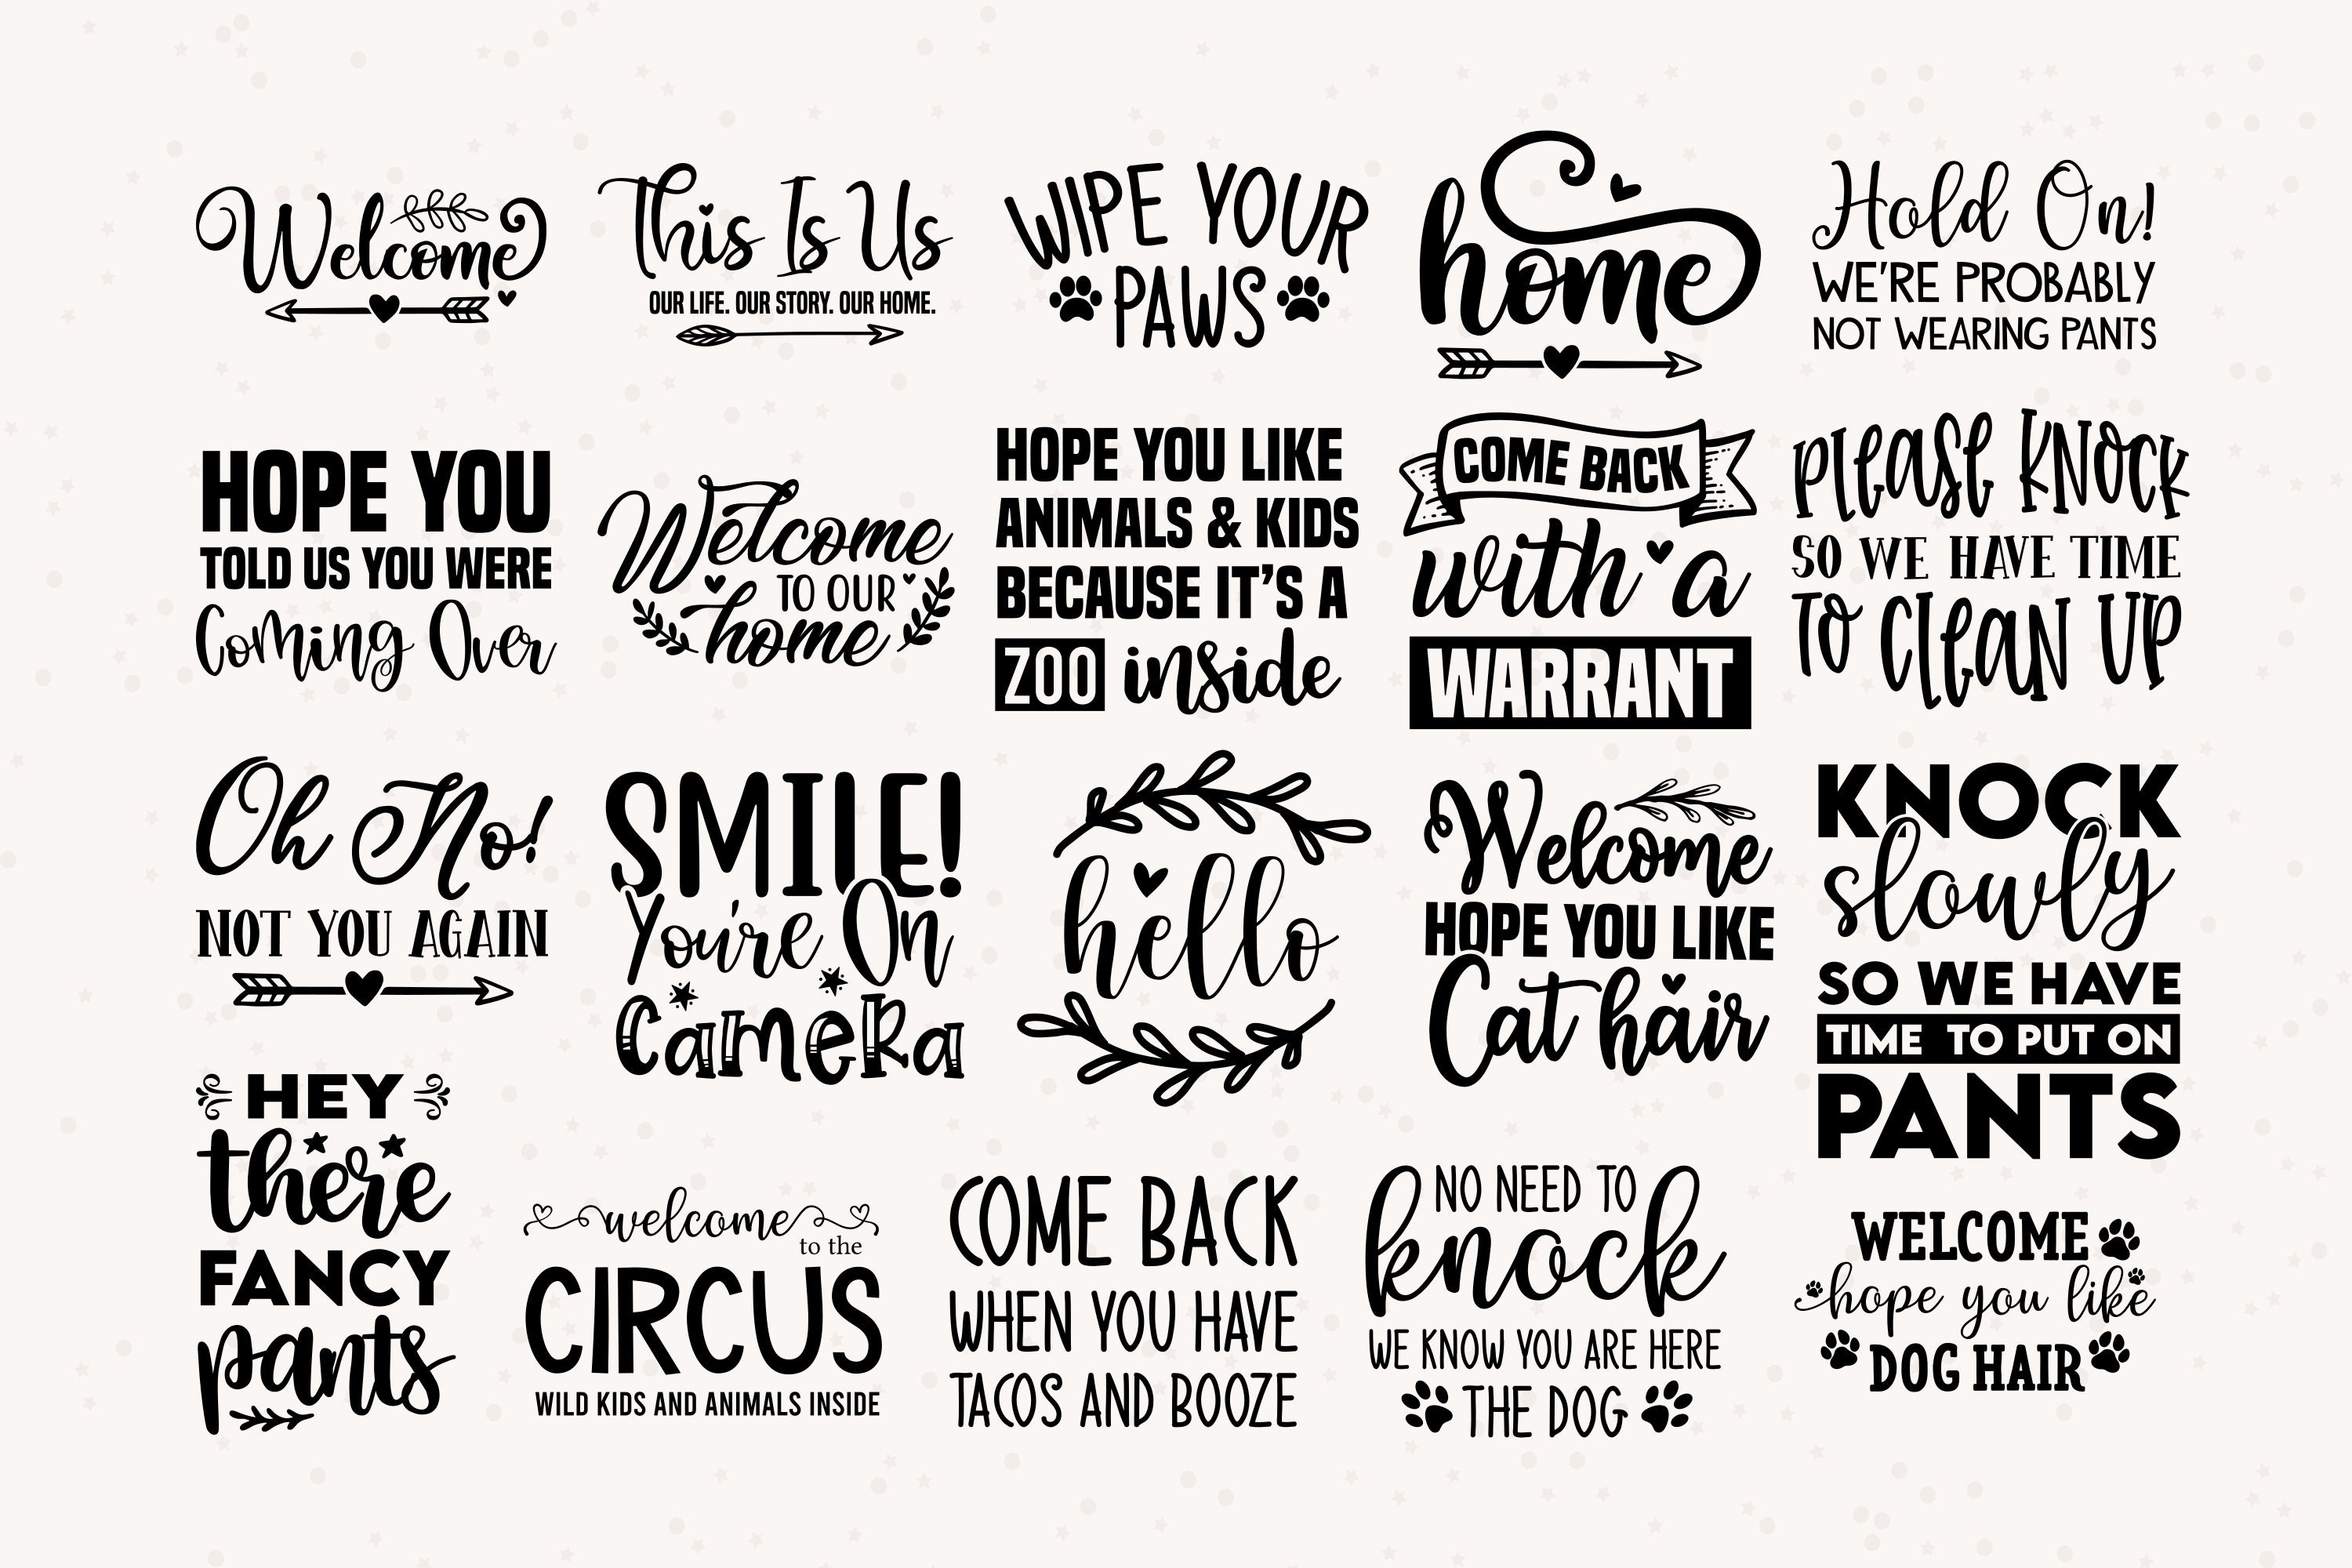 Welcome
This Is Us
OUR LIFE. OUR STORY. OUR HOME.
WIPE YOUR
PAWS
home
Hold On!
WE'RE PROBABLY
NOT WEARING PANTS
HOPE YOU
TOLD US YOU WERE
Coming Over
Welcome
TO OUR
home
HOPE YOU LIKE
ANIMALS & KIDS
BECAUSE IT'S A
ZOO inside
COME BACK
with a
WARRANT
Please KNOCK
SO WE HAVE TIME
TO CleaN UP
Oh No!
NOT YOU AGAIN
SMILE!
You're On
CameRa
hello
Welcome
HOPE YOU LIKE
Cat hair
KNOCK
slowly
SO WE HAVE
TIME TO PUT ON
PANTS
HEY
there
FANCY
pants
welcome
to the
CIRCUS
WILD KIDS AND ANIMALS INSIDE
COME BACK
WHEN YOU HAVE
TACOS AND BOOZE
NO NEED TO
knock
WE KNOW YOU ARE HERE
THE DOG
WELCOME
hope you like
DOG HAIR